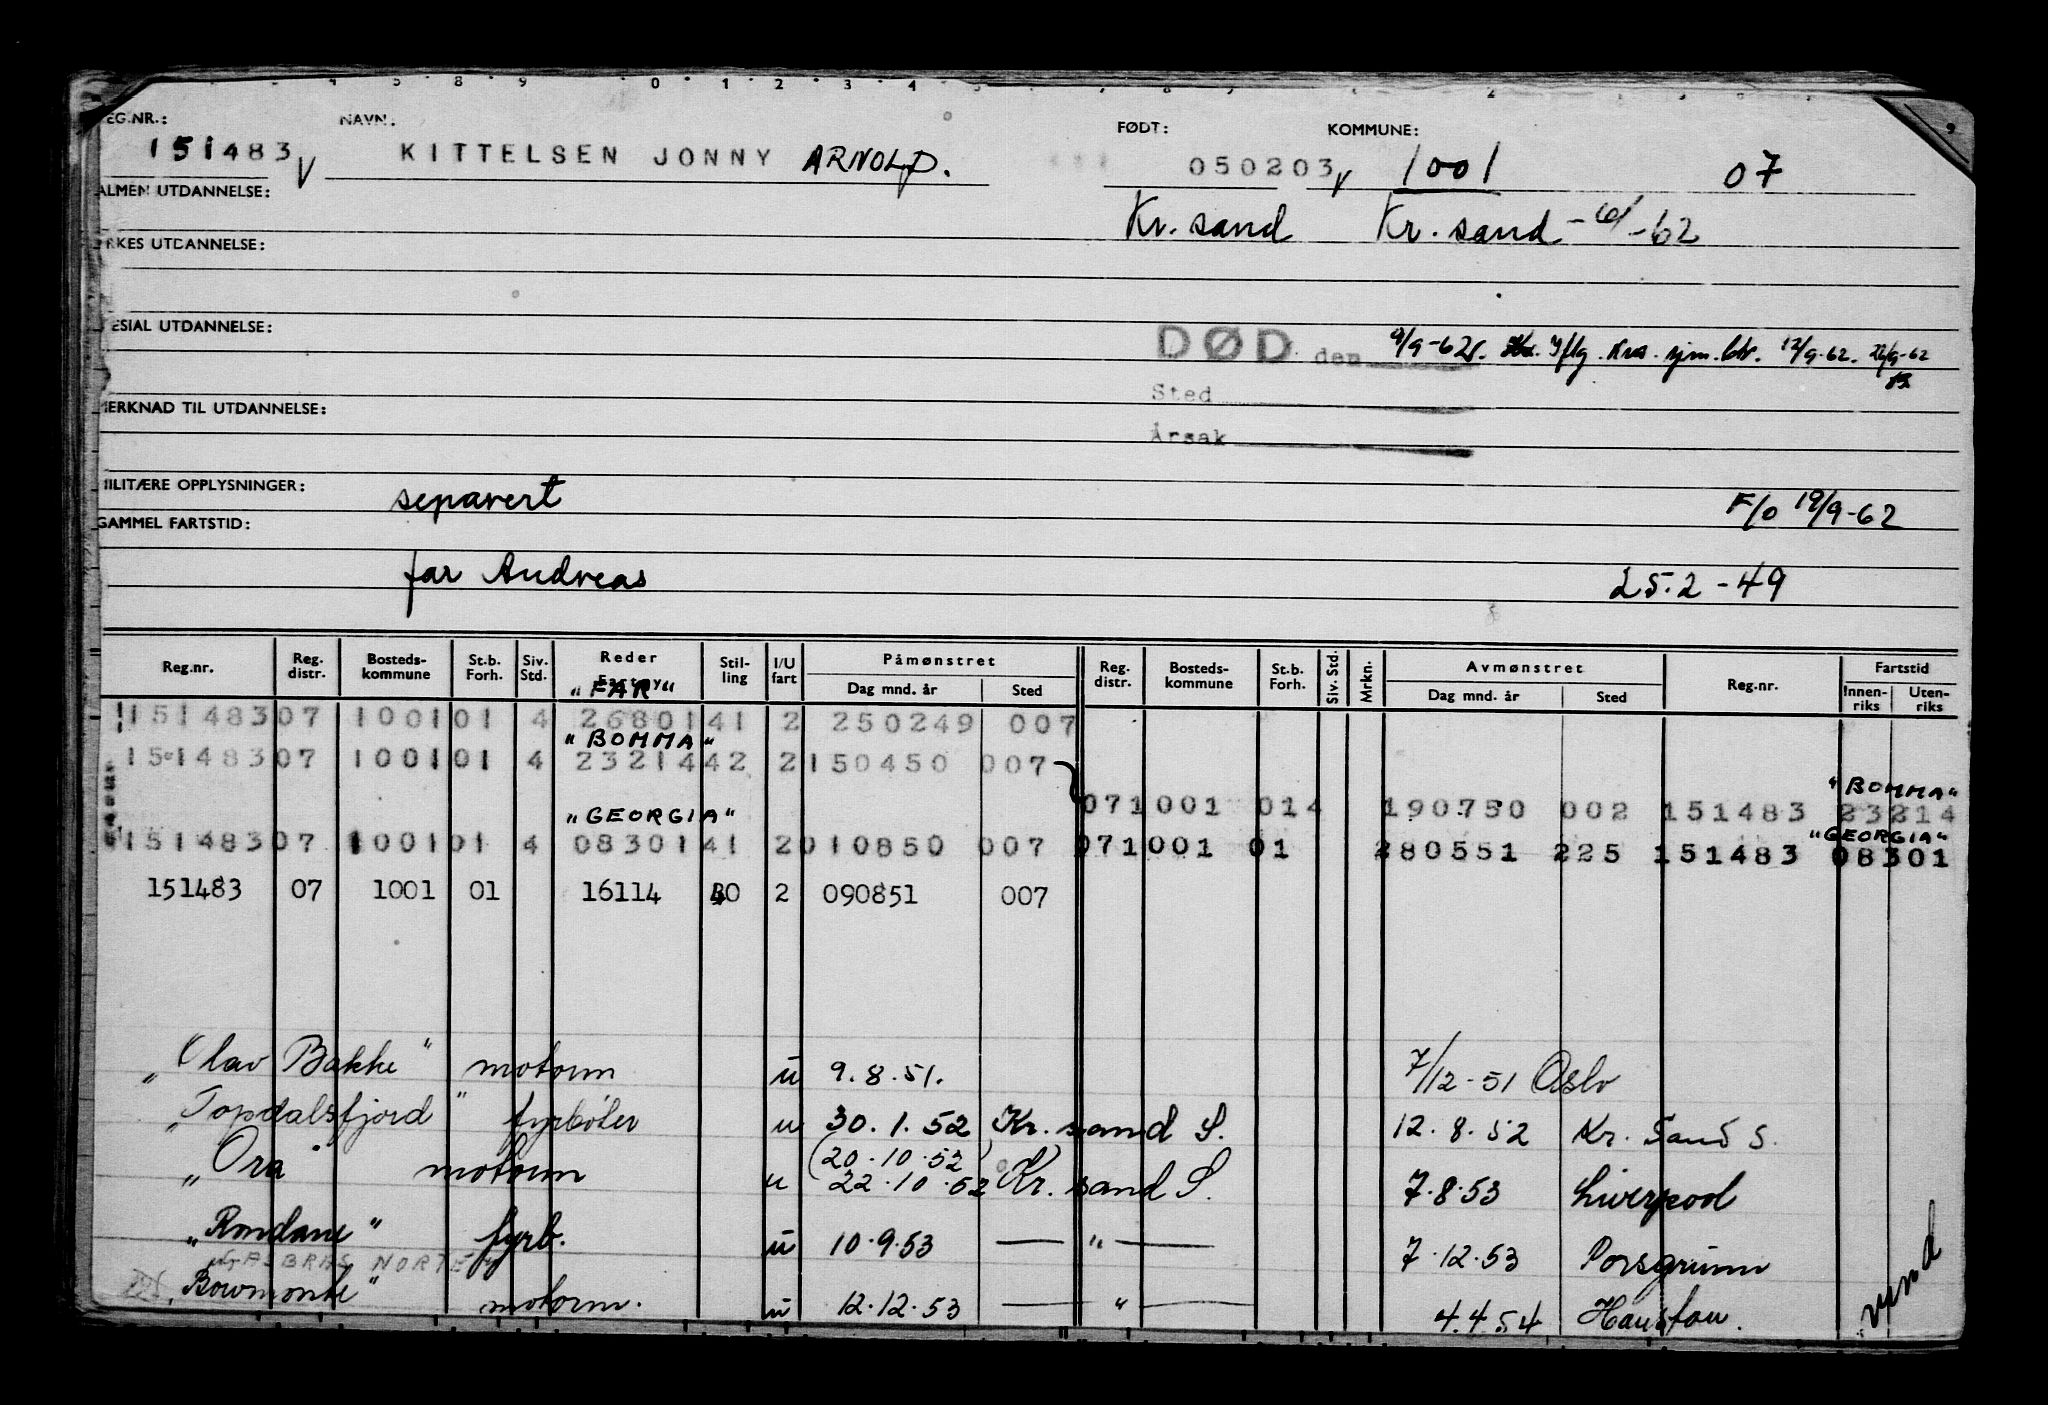 EG.NR.: NAVN: FØDT: KOMMUNE:
151483 v KITTELSEN JONNY ARNOLD. 050203 v 1001 07
ALMEN UTDANNELSE: Kr. sand Kr. sand -62
RKES UTDANNELSE:
ESIAL UTDANNELSE:
DØD den 9/9-62 Iflg. Krs. sjm.ktr. 12/9-62. 22/9-62
Sted
MERKNAD TIL UTDANNELSE:
Årsak
MILITÆRE OPPLYSNINGER: separert F/o 19/9-62
GAMMEL FARTSTID:
far Andreas 25.2-49
Reg.nr. Reg. distr. Bosteds- kommune St.b. Forh. Siv. Std. Reder Stil- ling I/U fart Påmønstret Reg. distr. Bosteds- kommune St.b. Forh. Siv. Std. Mrkn. Avmønstret Reg.nr. Fartstid
Dag mnd. år Sted Dag mnd. år Sted Innen- riks Uten- riks
"FAR"
151483 07 1001 01 4 26801 41 2 250249 007
"BOMMA"
151483 07 1001 01 4 23214 42 2 150450 007
"BOMMA"
07 1001 014 190750 002 151483 23214
"GEORGIA" "GEORGIA"
151483 07 1001 01 4 08301 41 2 010850 007 07 1001 01 280551 225 151483 08301
151483 07 1001 01 16114 40 2 090851 007
"Olav Bakke" motorm u 9.8.51. 7/12-51 Oslo
"Topdalsfjord" fyrbøter u 30.1.52 Kr. sand S. 12.8.52 Kr. Sand S.
(20.10.52)
"Ora" motorm u 22.10.52 Kr. sand S. 7.8.53 Liverpool
"Rondane" fyrb. u 10.9.53 — " — 7.12.53 Porsgrunn
NORTE
"Bowmonte" motorm. u 12.12.53 — " — 4.4.54 Houston.
vend